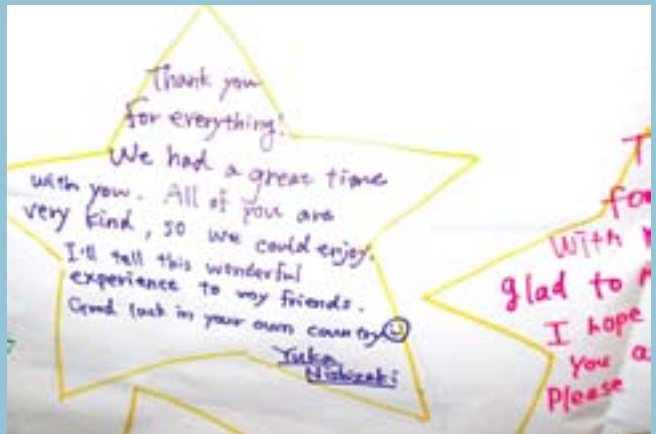 Thank you
for everything!
We had a great time
with you. All of you are
very kind, so we could enjoy.
I'll tell this wonderful
experience to my friends.
Good luck in your own country
Yuka
Nishizaki
T
for
With
glad to
I hope
you a
Please